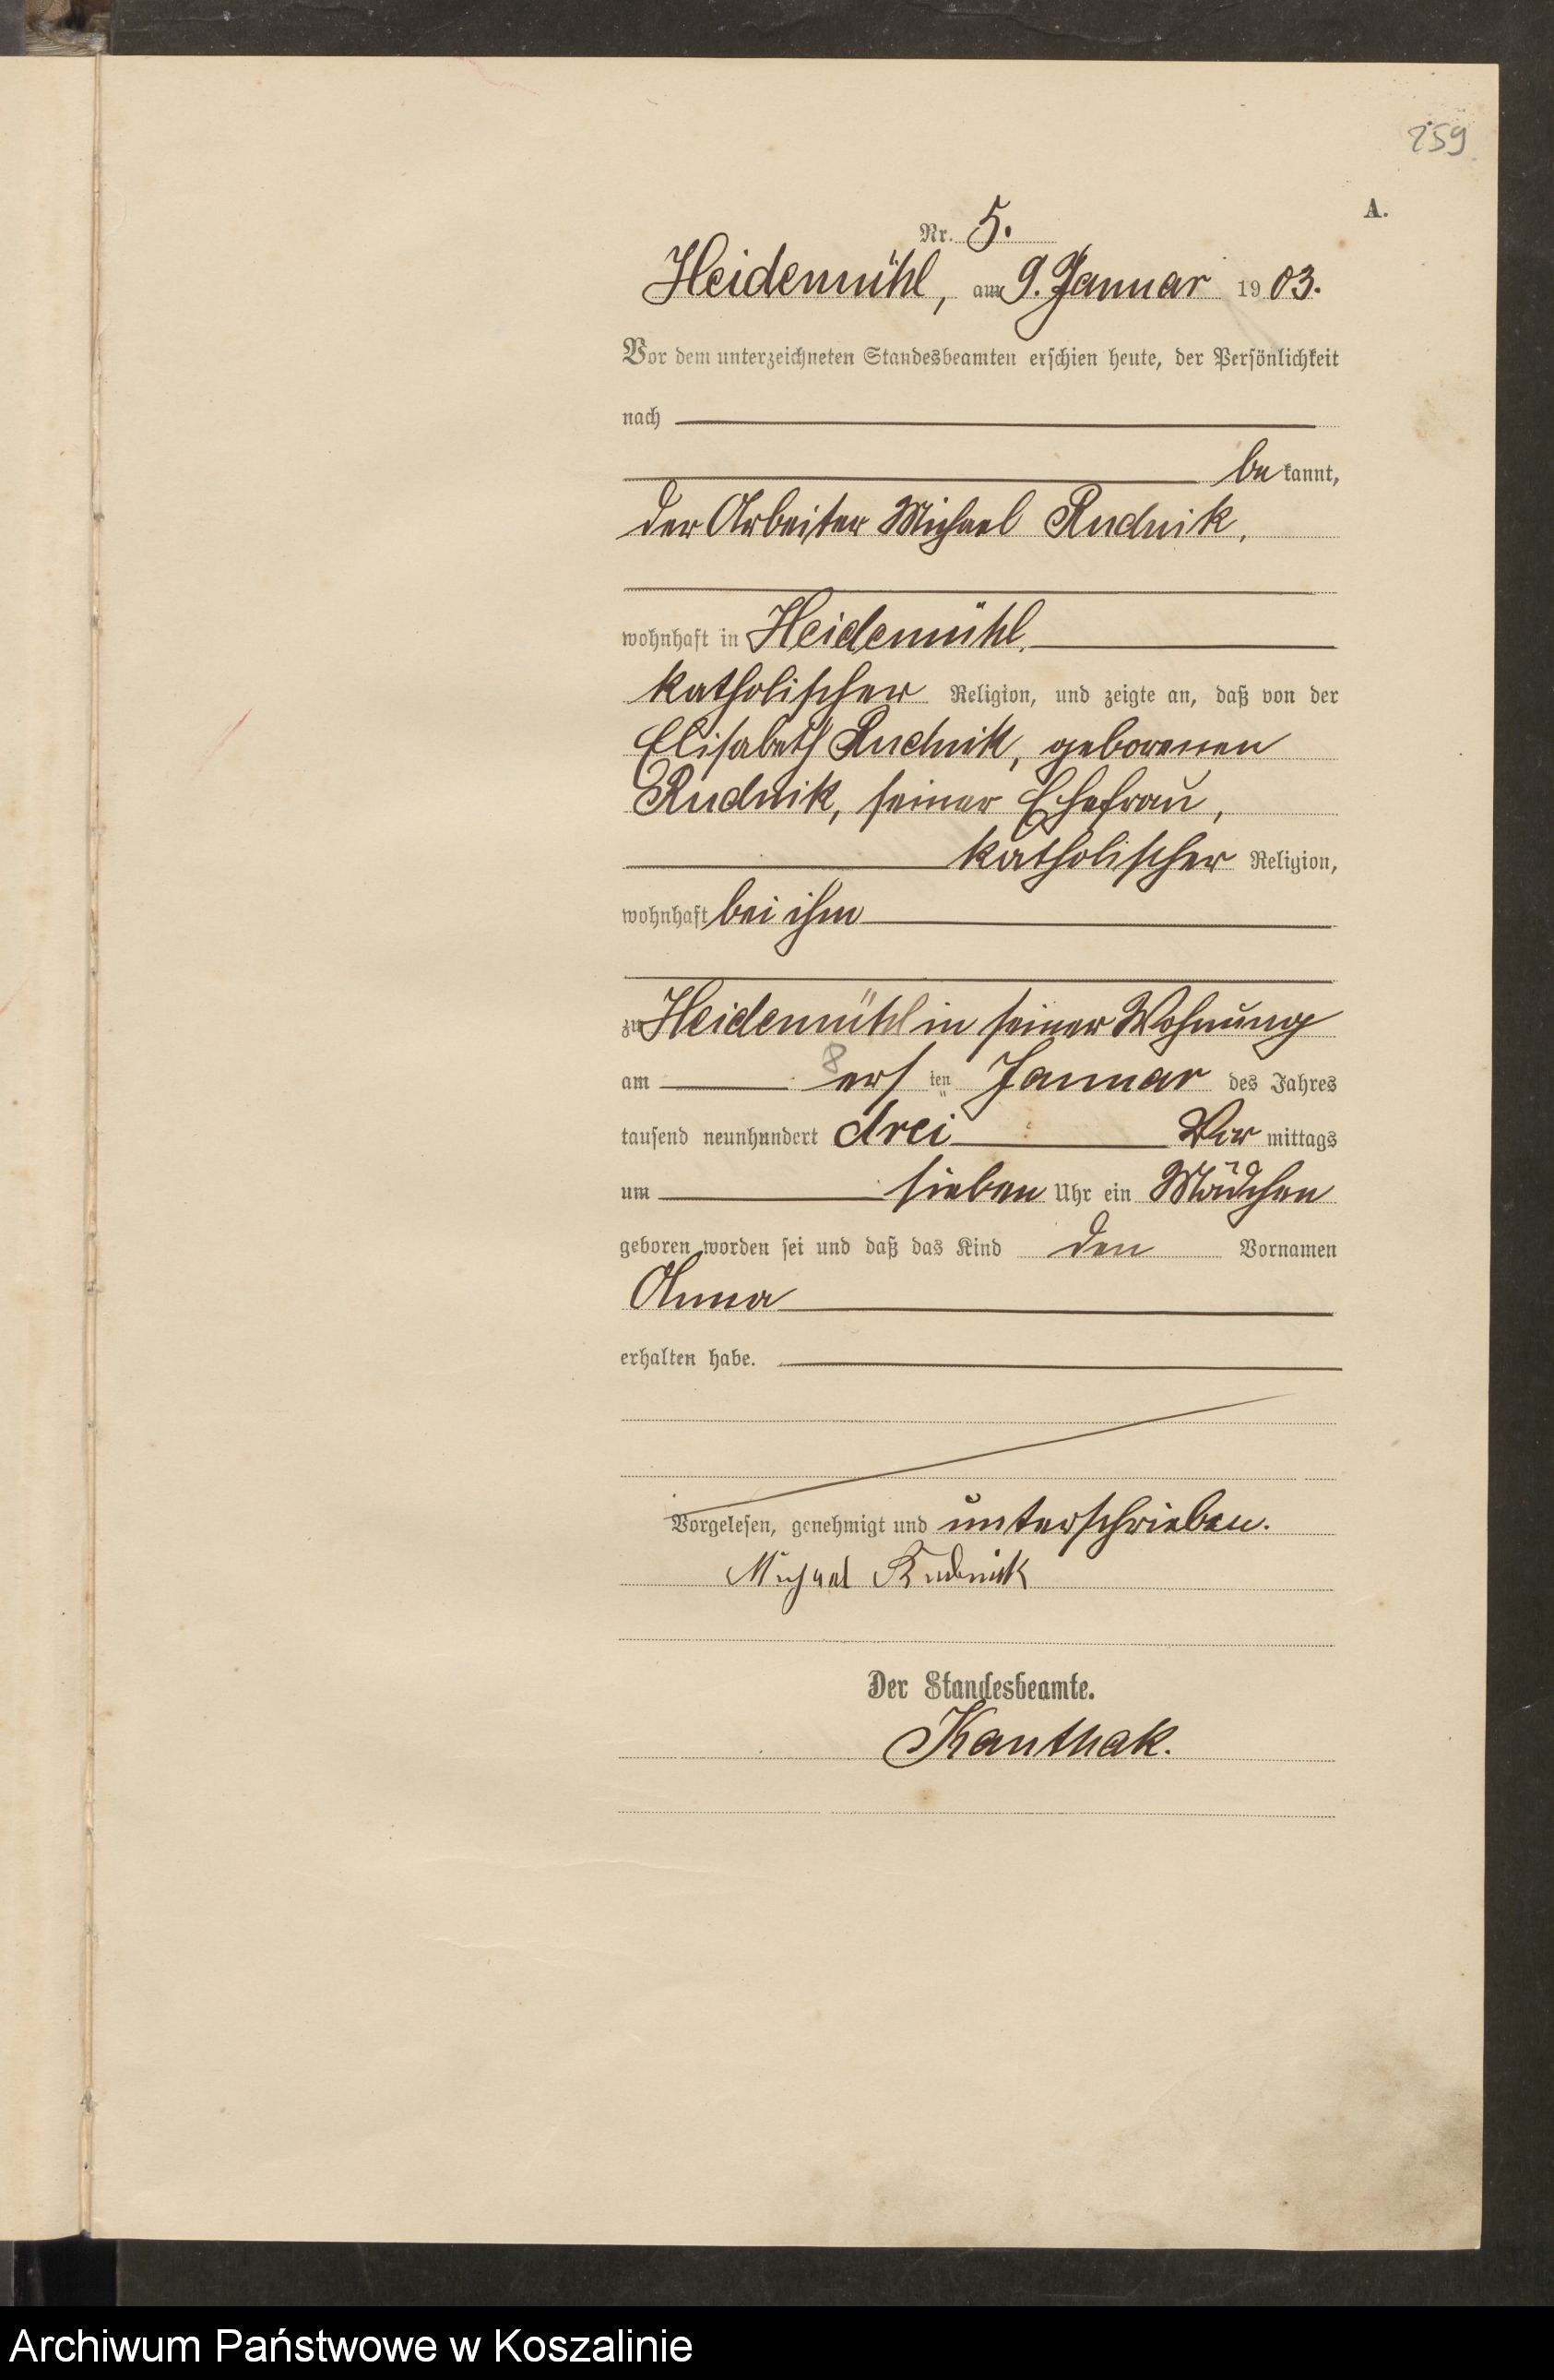 259
A.
Nr. 5.
Heidemühl, am 9. Januar 1903.
Vor dem unterzeichneten Standesbeamten erschien heute, der Persönlichkeit
nach
bekannt,
der Arbeiter Michael Rudnik,
wohnhaft in Heidemühl,
katholischer Religion, und zeigte an, daß von der
Elisabeth Rudnik, geborenen
Rudnik, seiner Ehefrau,
katholischer Religion,
wohnhaft bei ihm
zu Heidemühl in seiner Wohnung
8
am ten Januar des Jahres
tausend neunhundert drei Vor mittags
um sieben Uhr ein Mädchen
geboren worden sei und daß das Kind den Vornamen
Anna
erhalten habe.
Vorgelesen, genehmigt und unterschrieben.
Michael Rudnik
Der Standesbeamte.
Kanthak.
Archiwum Państwowe w Koszalinie